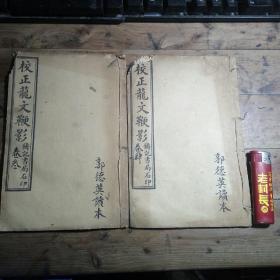 校正龍文鞭影
書局石印
卷叁
郭德英讀本
校正龍文鞭影
書局石印
卷肆
郭德英讀本
老村長